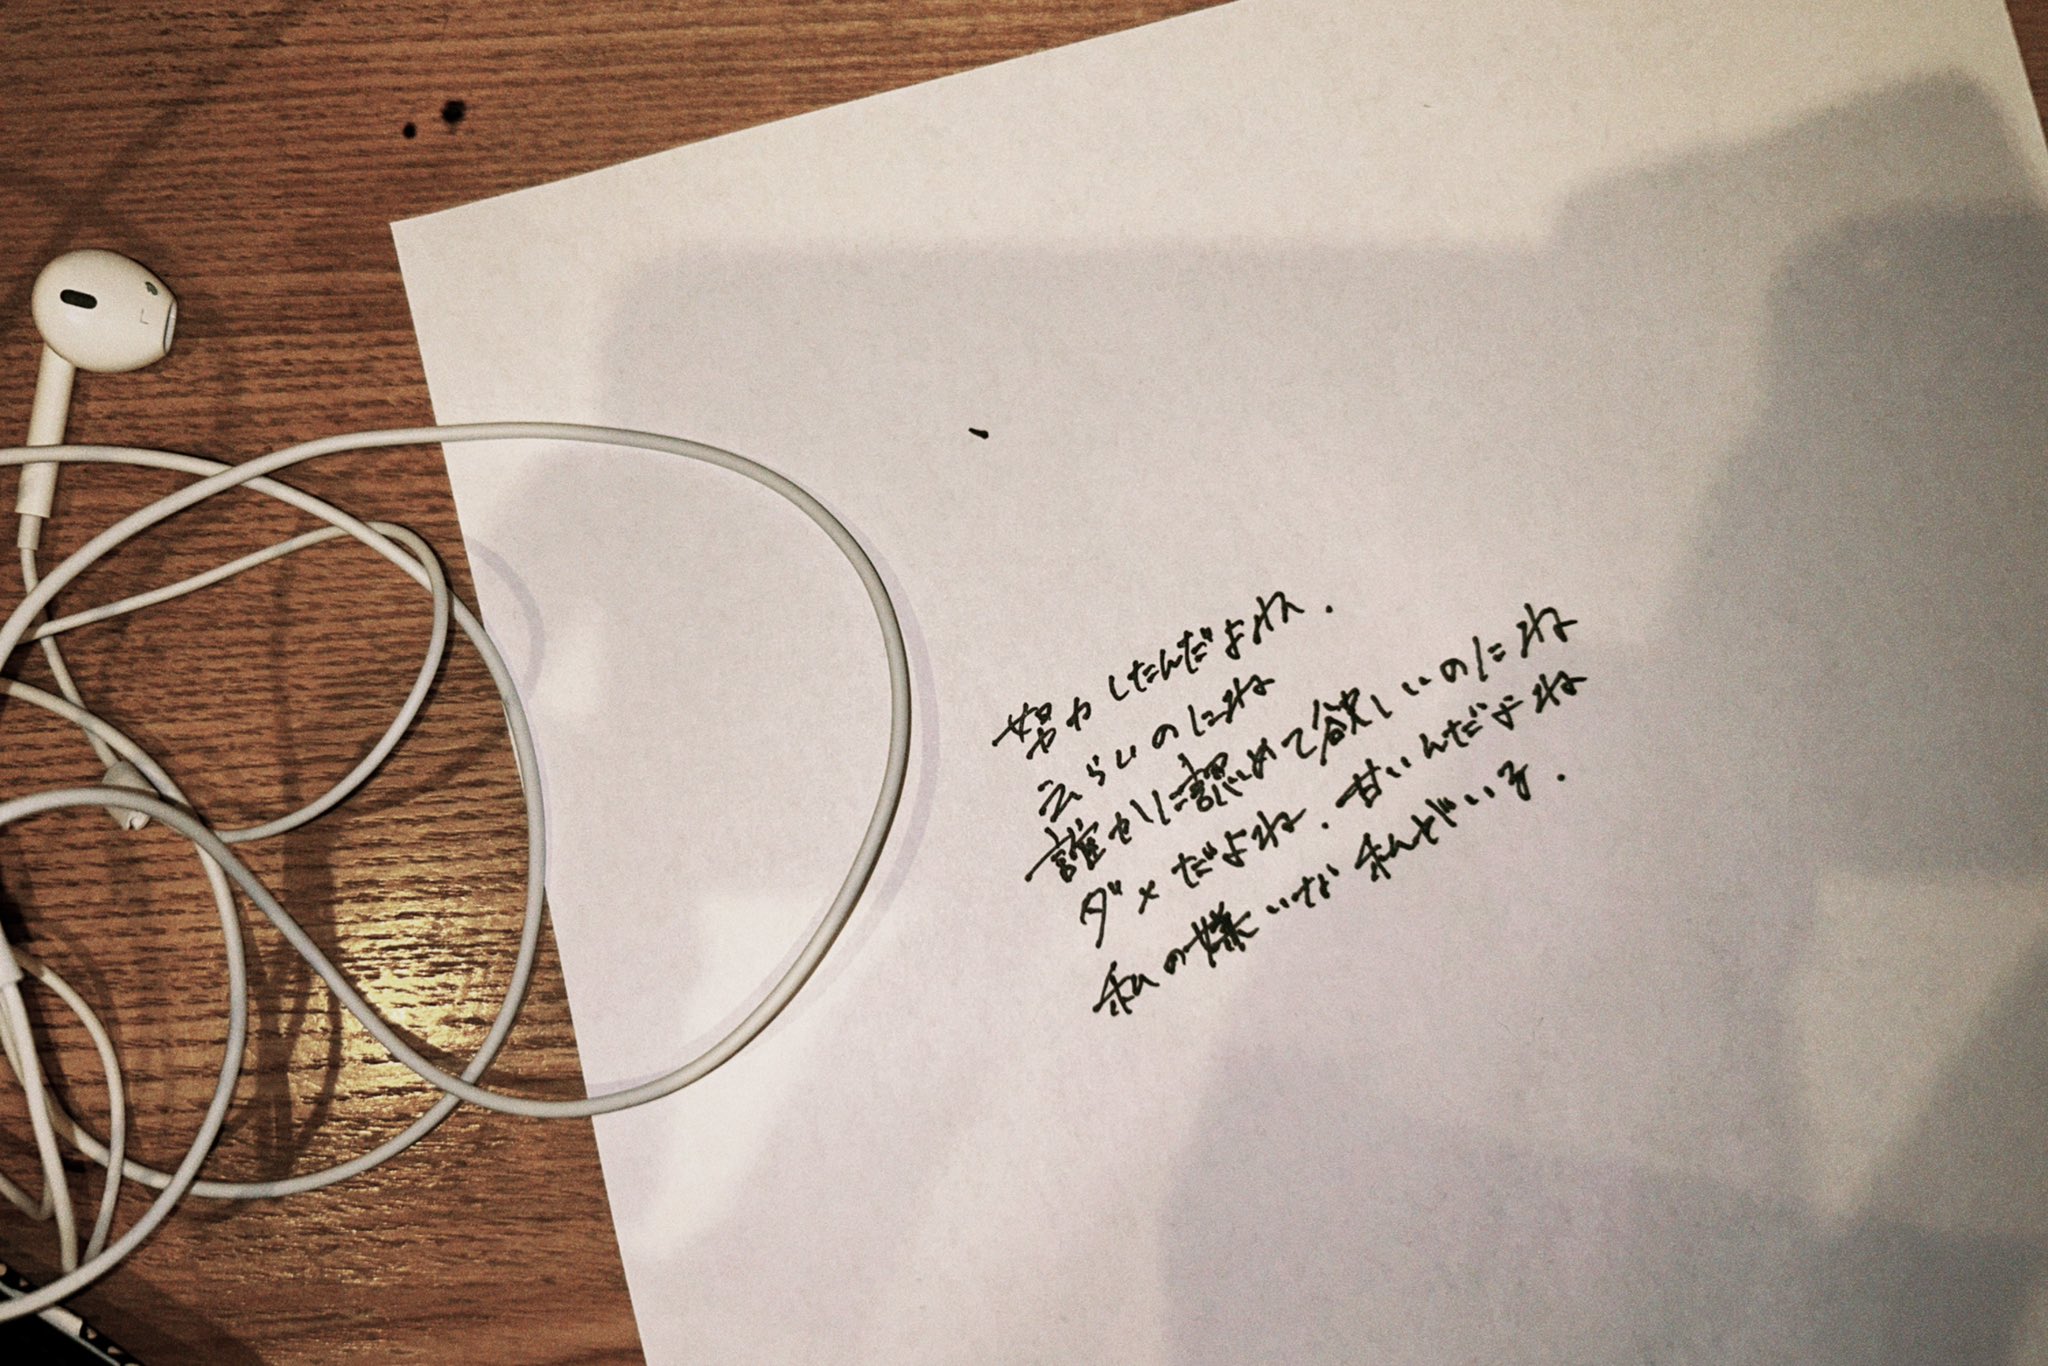 努力したんだよね.
えらいのにね
誰かに認めて欲しいのにね
ダメだよね.甘いんだよね
私の嫌いな私がいる.
L